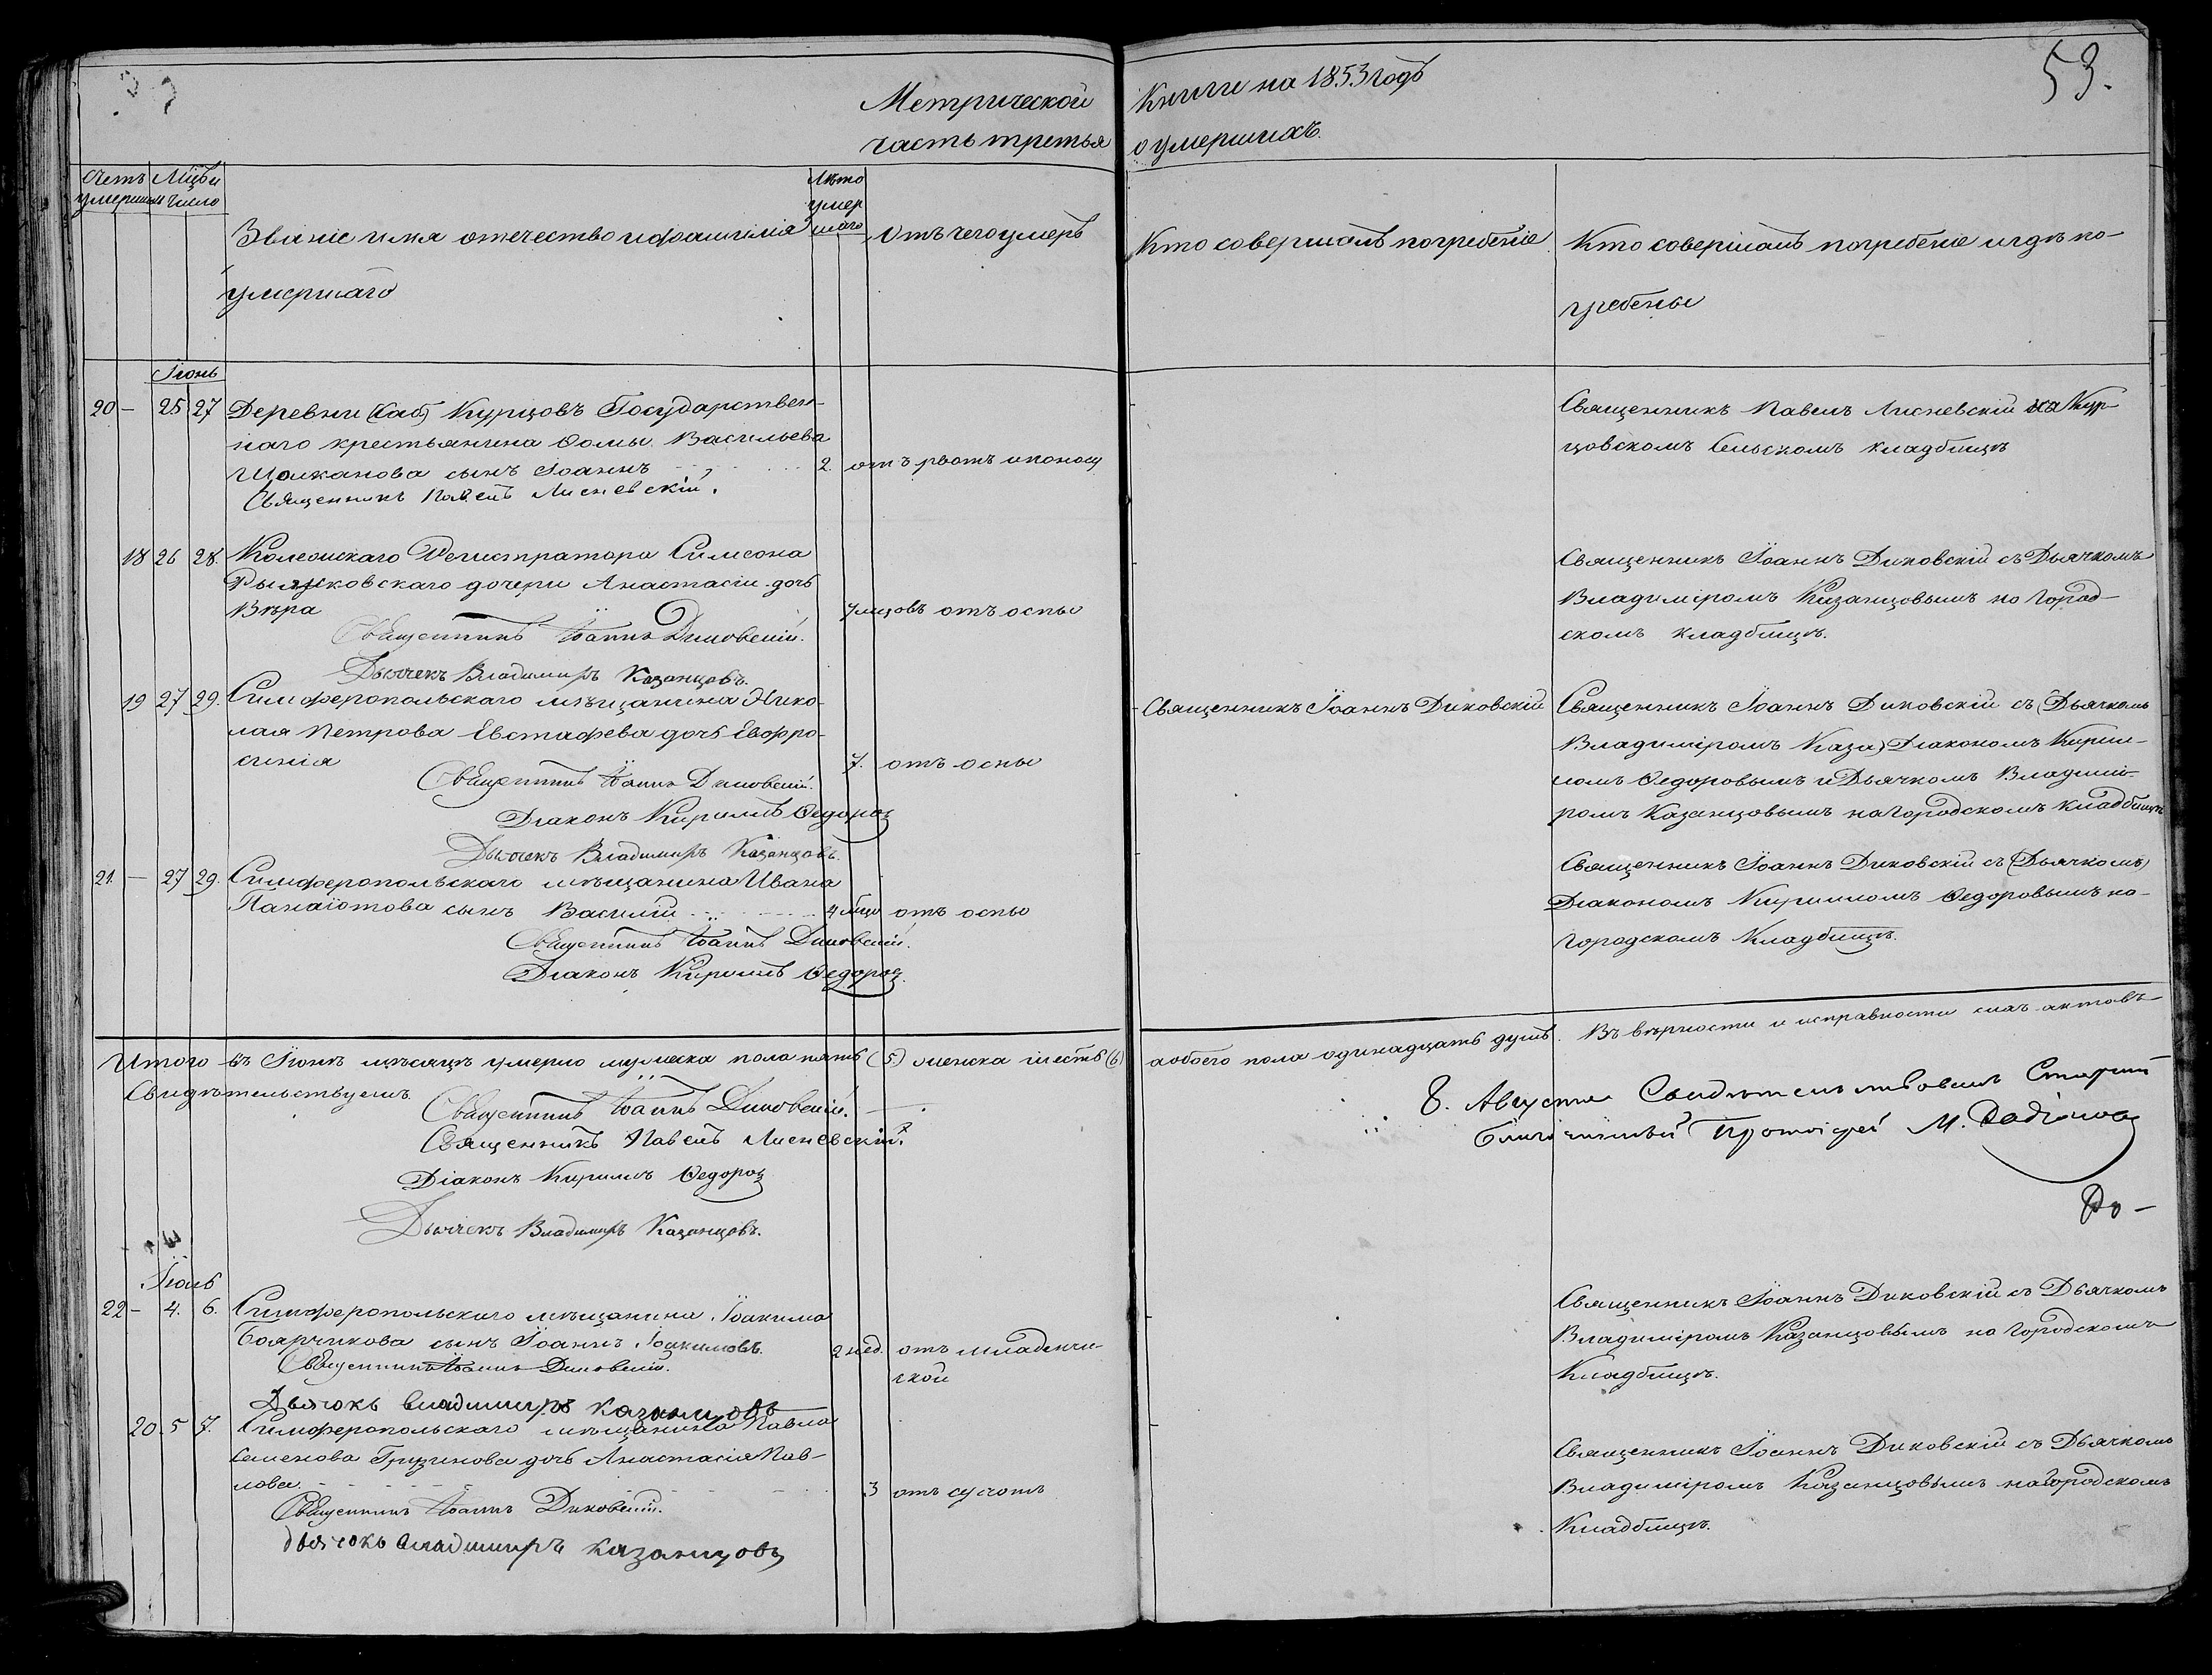 Метрической Книги на 1853 годъ
53.
часть третья о умершихъ.
Счетъ умершихъ
Мцъ и число
Званіе имя отечество и фамилія
умершаго
Лѣто умершаго
Отъ чего умеръ
Кто совершалъ погребеніе
Кто совершалъ погребеніе и гдѣ по-
гребены
Іюнь
20 — 25 27 Деревни (Саб) Курцовъ Государствен-
наго крестьянина Ѳомы Васильева
сынъ Іоаннъ 2. отъ рвотъ и поносу
Священникъ Павелъ Лисневскій.
Священникъ Павелъ Лисневскій на Кур-
цовскомъ Сельскомъ кладбищѣ
18 26 28. Колежскаго Регистратора Симеона
дочери Анастасіи дочь
Вѣра 7 мцовъ отъ оспы
Священникъ Іоаннъ Диковскій.
Дьячекъ Владимиръ Казанцовъ.
Священникъ Іоаннъ Диковскій съ Дьячкомъ
Владиміромъ Казанцовымъ на Город-
скомъ кладбищѣ.
19 27 29. Симферопольскаго мѣщанина Нико-
лая Петрова Евстафева дочь Евфро-
синія 7. отъ оспы
Священникъ Іоаннъ Диковскій.
Діаконъ Кириллъ Ѳедоров
Дьячекъ Владимиръ Казанцовъ.
Священникъ Іоаннъ Диковскій
Священникъ Іоаннъ Диковскій съ (Дьячкомъ
Владиміромъ Каза) Діакономъ Кирил-
ломъ Ѳедоровымъ и Дьячкомъ Владимі-
ромъ Казанцовымъ на Городскомъ кладбищѣ
21. — 27 29. Симферопольскаго мѣщанина Ивана
Панаіотова сынъ Василій 4 мцы отъ оспы
Священникъ Іоаннъ Диковскій.
Діаконъ Кириллъ Ѳедоров
Священникъ Іоаннъ Диковскій съ (Дьячкомъ)
Діакономъ Кирилломъ Ѳедоровымъ на-
городскомъ Кладбищѣ.
Итого въ Іюнѣ мѣсяцѣ умерло мужеска пола пять (5.) женска шесть (6) а обоего пола одинадцать душъ. Въ вѣрности и исправности сихъ актовъ
Свидѣтельствуемъ
Священникъ Іоаннъ Диковскій.
Священникъ Павелъ Лисневскій.
Діаконъ Кириллъ Ѳедоров
Дьячекъ Владимиръ Казанцовъ.
8. Августа Свидѣтельствовалъ Старшій
Благочинный Протоіерей М. Родіонов
Іюль
22 — 4. 6. Симферопольскаго мѣщанина Іоакима
Боярчикова сынъ Іоаннъ Іоакимовъ. 2 нед. отъ младенче-
ской
Священникъ Іоаннъ Диковскій.
Дьячокъ Владимиръ Казанцовъ
Священникъ Іоаннъ Диковскій съ Дьячкомъ
Владиміромъ Казанцовымъ на Городскомъ
Кладбищѣ.
20. 5 7. Симферопольскаго мѣщанина Павла
Семенова Грузинова дочь Анастасія Пав-
лова. 3 отъ сухотъ
Священникъ Іоаннъ Диковскій.
дьячокъ владимиръ казанцовъ
Священникъ Іоаннъ Диковскій съ Дьячкомъ
Владиміромъ Казанцовымъ на городскомъ
Кладбищѣ.